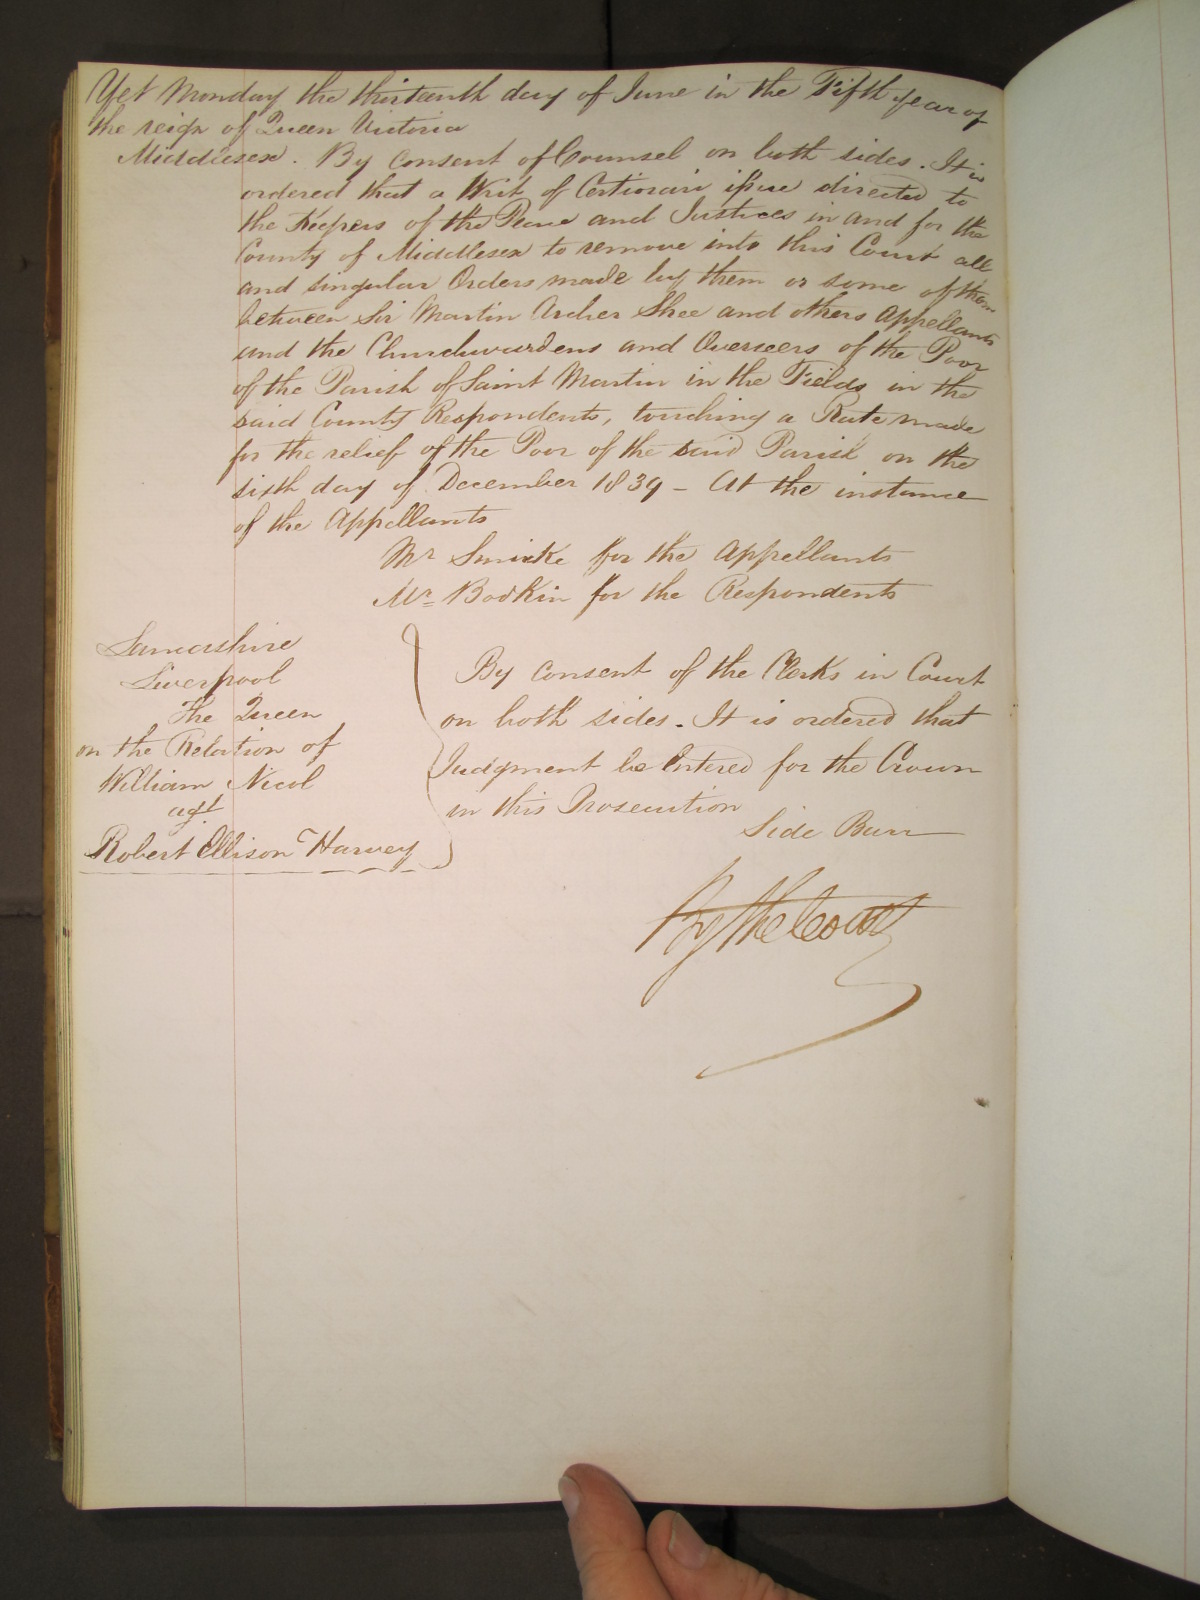 Yet Monday the thirteenth day of June in the Fifth year of
the reign of Queen Victoria
Middlesex. By consent of Counsel on both sides. It is
ordered that a Writ of Certiorari issue directed to
the Keepers of the Peace and Justices in and for the
County of Middlesex to remove into this Court all
and singular Orders made by them or some of them
between Sir Martin Archer Shee and others Appellants
and the Churchwardens and Overseers of the Poor
of the Parish of Saint Martin in the Fields in the
said County Respondents, touching a Rate made
for the relief of the Poor of the said Parish on the
sixth day of December 1839 - At the instance
of the Appellants
Mr Smirke for the Appellants
Mr Bodkin for the Respondents
Lancashire
Liverpool
The Queen
on the Relation of
William Nicol
agt
Robert Ellison Harvey
By consent of the Clerks in Court
on both sides. It is ordered that
Judgment be Entered for the Crown
in this Prosecution
Side Barr
By the Court